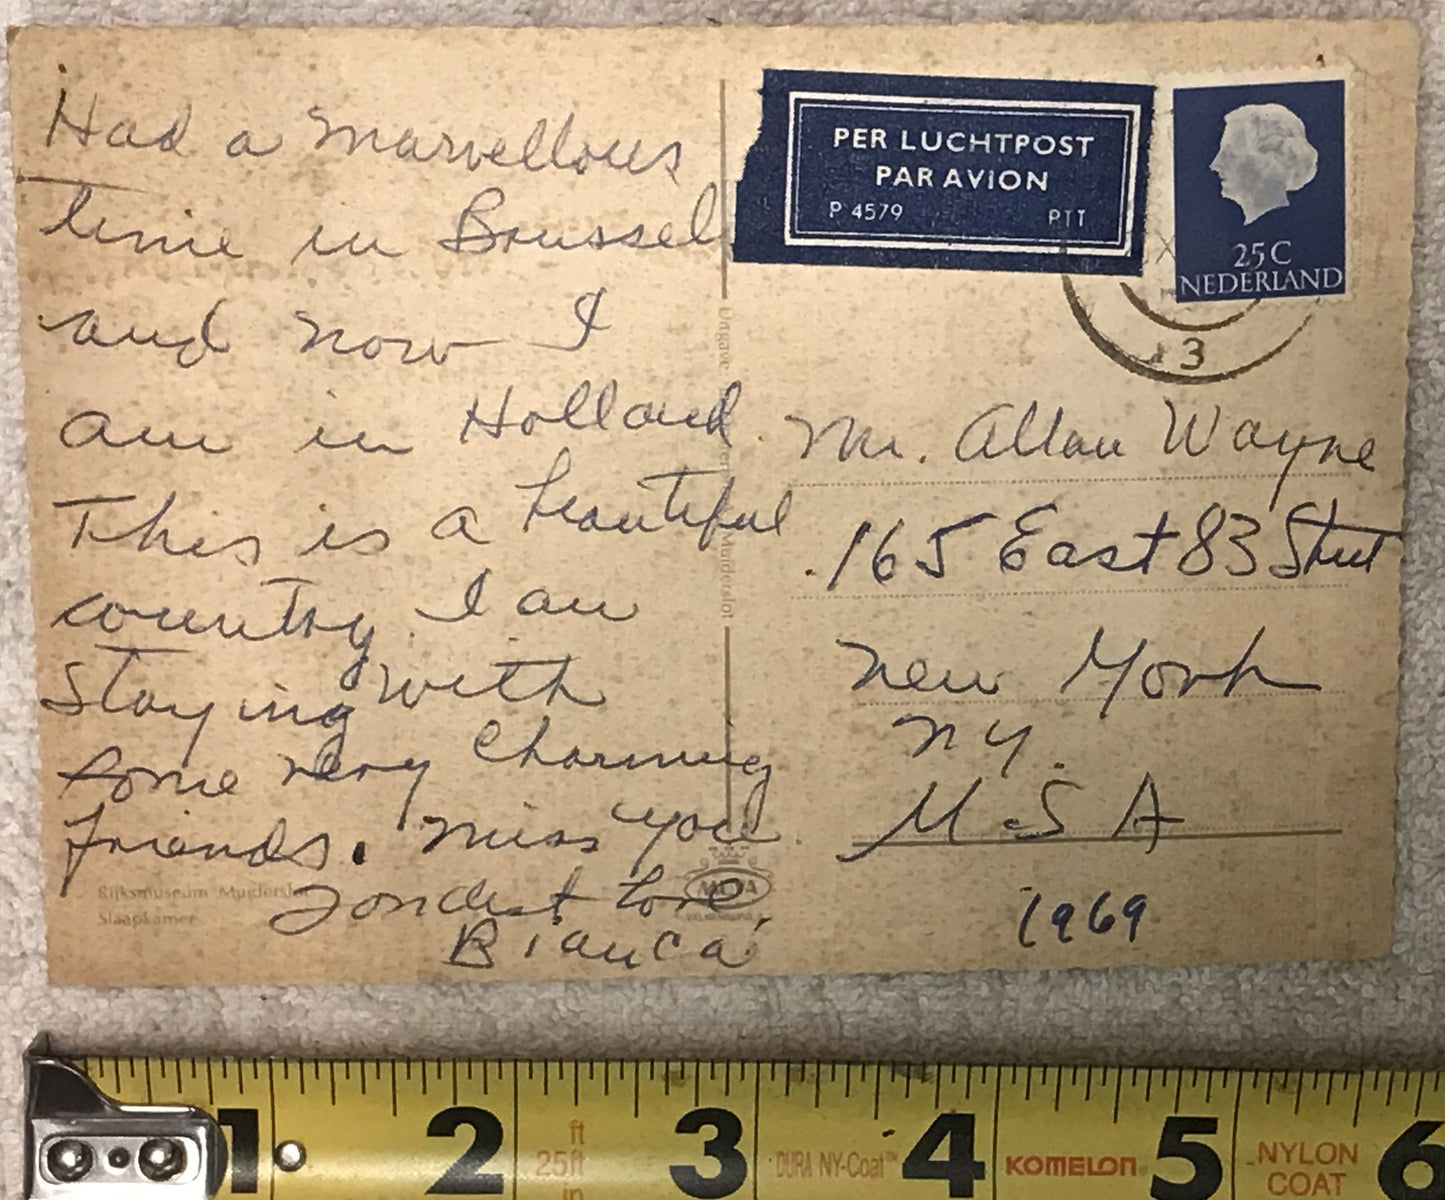 Had a marvellous
time in Brussel
and now I
am in Holland.
This is a beautiful
country. I am
staying with
some very charming
friends. miss you
Fondest Love,
Bianca
Rijksmuseum Muiderslot
Slaapkamer
Muiderslot
MUVA
PER LUCHTPOST
PAR AVION
P 4579 PTT
25C
NEDERLAND
X
3
Mr. Allan Wayne
165 East 83 Street
New York
NY.
U.S.A
1969
1 2 3 4 5 6
ft
25ft
in
DURA NY-Coat™
KOMELON
NYLON
COAT